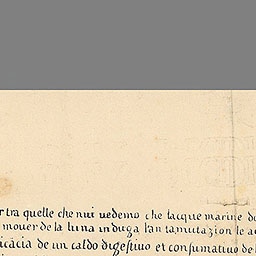 tra quelle che nui uedemo che lacque marine do
mouer de la luna induga lan tamutazion le a
icacia de un caldo digestiuo et consumatiuo de l